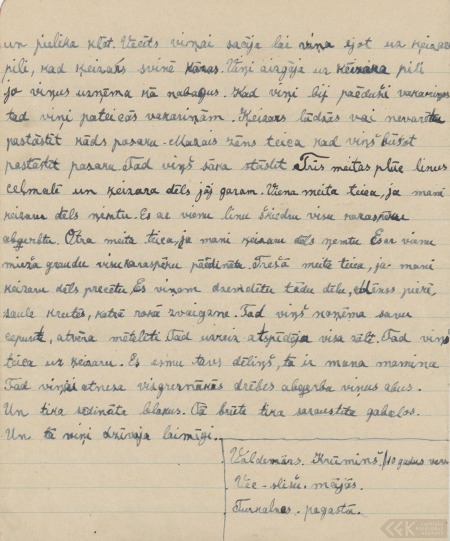 un pielika klāt. Vecīts viņai sacīja lai viņa ejot uz ķeizara
pili, kad ķeizars svinē kāzas. Viņi aizgāja uz ķeizara pili
jo viņus uzņēma kā nabagus. Kad viņi bij paēduši vakariņas
tad viņi pateicās vakariņām. Ķeizars lūdzās vai nevarētu
pastāstīt kāds pasaku. Mazais zēns teica kad viņš būšot
pastāstīt pasaku. Tad viņš sāka stāstīt Trīs meitas plūc linus
ceļmalē un ķeizara dēls jāj garam. Viena meita teica, ja mani
ķeizaru dēls ņemtu. Es ar vienu linu šķiedru visu karaspēku
apģērbtu. Otra meita teica, ja mani ķeizaru dēls ņemtu Es ar vienu
mieža graudu visu karaspēku paēdinātu. Trešā meita teica, ja mani
ķeizaru dēls precētu, Es viņam dzemdētu tādu dēlu, pierē
saule krutēs, katrā rokā zvaigzne. Tad viņš noņēma savu
cepuri, atvēra mētelīti. Tad uzreiz atspīdēja visa zālē. Tad viņš
teica uz ķeizaru. Es esmu tavs dēliņš, tā ir mana mamiņa
Tad viņai atnesa visgreznākās drēbes apģērba viņus abus.
Un tika sēdināte blakus. Tā brūte tika saraustīta gabalos.
Un tā viņi dzīvoja laimīgi.
Valdemārs. Krūmiņš. /10 gadus vecs
Vec-sliķu mājās.
Turkalnes. pagastā.